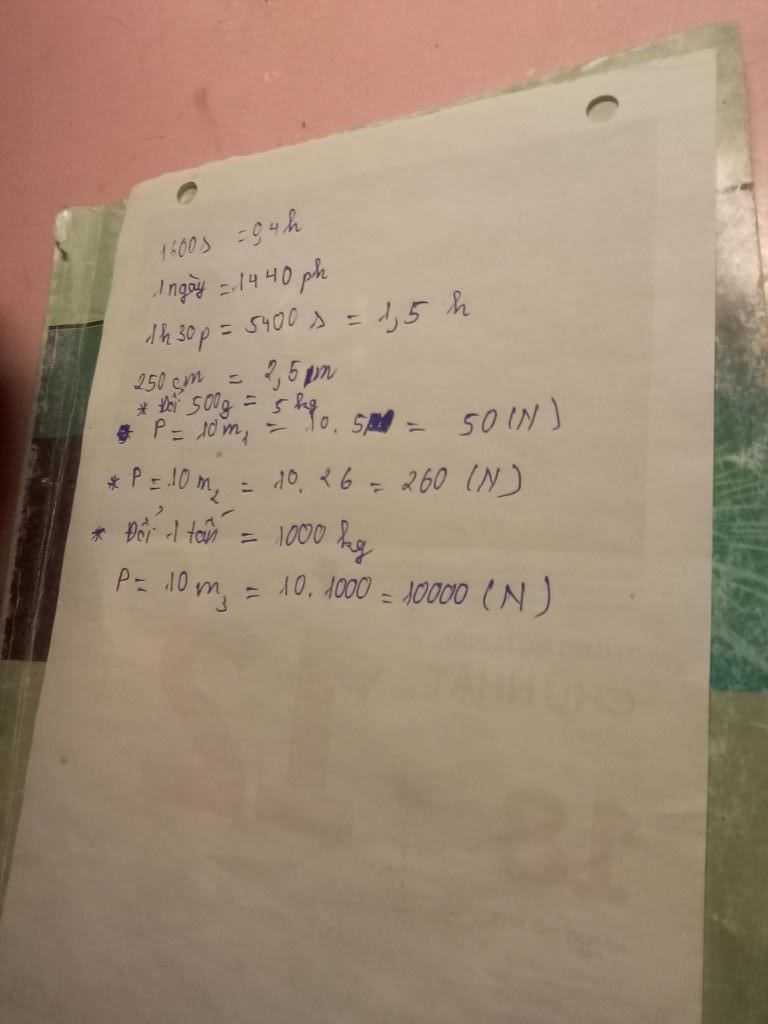 1600s = 0,4h
1 ngày = 1440 ph
1h 30p = 5400 s = 1,5 h
250 cm = 2,5 m
* Đổi 500g = 5 kg
* P = 10 m₁ = 10. 5 = 50 (N)
* P = 10 m₂ = 10. 26 = 260 (N)
* Đổi 1 tấn = 1000 kg
P = 10 m₃ = 10. 1000 = 10000 (N)
CHỦ NHẬT
12
18